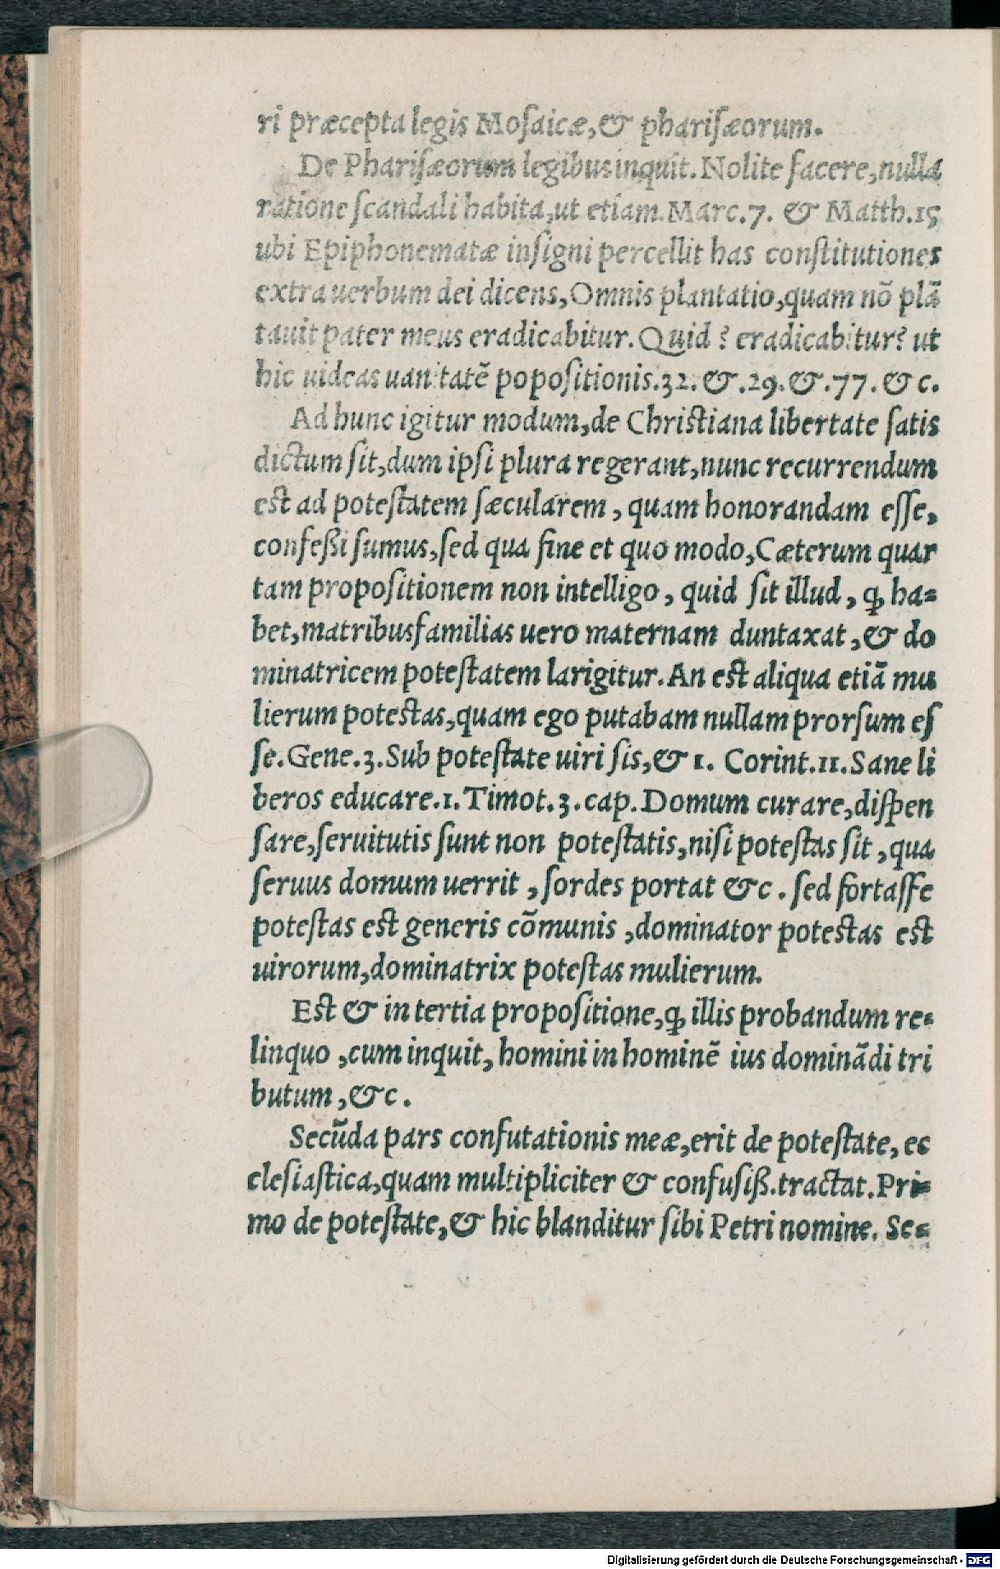 ri præcepta legis Mosaicæ,& pharisæorum.
De Pharisæorum legibus inquit. Nolite facere,nulla
ratione scandali habita,ut etiam.Marc.7. & Matth.15
ubi Epiphonematæ insigni percellit has constitutiones
extra uerbum dei dicens,Omnis plantatio,quam nō plā
tauit pater meus eradicabitur. Quid ? eradicabitur? ut
hic uideas uanitatē popositionis.32. &.29.&.77. & c.
Ad hunc igitur modum,de Christiana libertate satis
dictum sit,dum ipsi plura regerant,nunc recurrendum
est ad potestatem sæcularem , quam honorandam esse,
confeßi sumus,sed qua fine et quo modo,Cæterum quar
tam propositionem non intelligo , quid sit illud , ꝙ ha=
bet,matribusfamilias uero maternam duntaxat ,& do
minatricem potestatem larigitur. An est aliqua etiā mu
lierum potestas,quam ego putabam nullam prorsum es
se. Gene.3. Sub potestate uiri sis,& 1. Corint.11. Sane li
beros educare.1. Timot.3. cap. Domum curare,dispen
sare,seruitutis sunt non potestatis,nisi potestas sit ,qua
seruus domum uerrit , sordes portat &c . sed fortasse
potestas est generis cōmunis ,dominator potestas est
uirorum,dominatrix potestas mulierum.
Est & in tertia propositione,ꝙ illis probandum re=
linquo ,cum inquit, homini in hominē ius dominādi tri
butum ,&c .
Secūda pars confutationis meæ,erit de potestate, ec
clesiastica,quam multipliciter & confusiß.tractat. Pri=
mo de potestate,& hic blanditur sibi Petri nomine. Se=
Digitalisierung gefördert durch die Deutsche Forschungsgemeinschaft - DFG